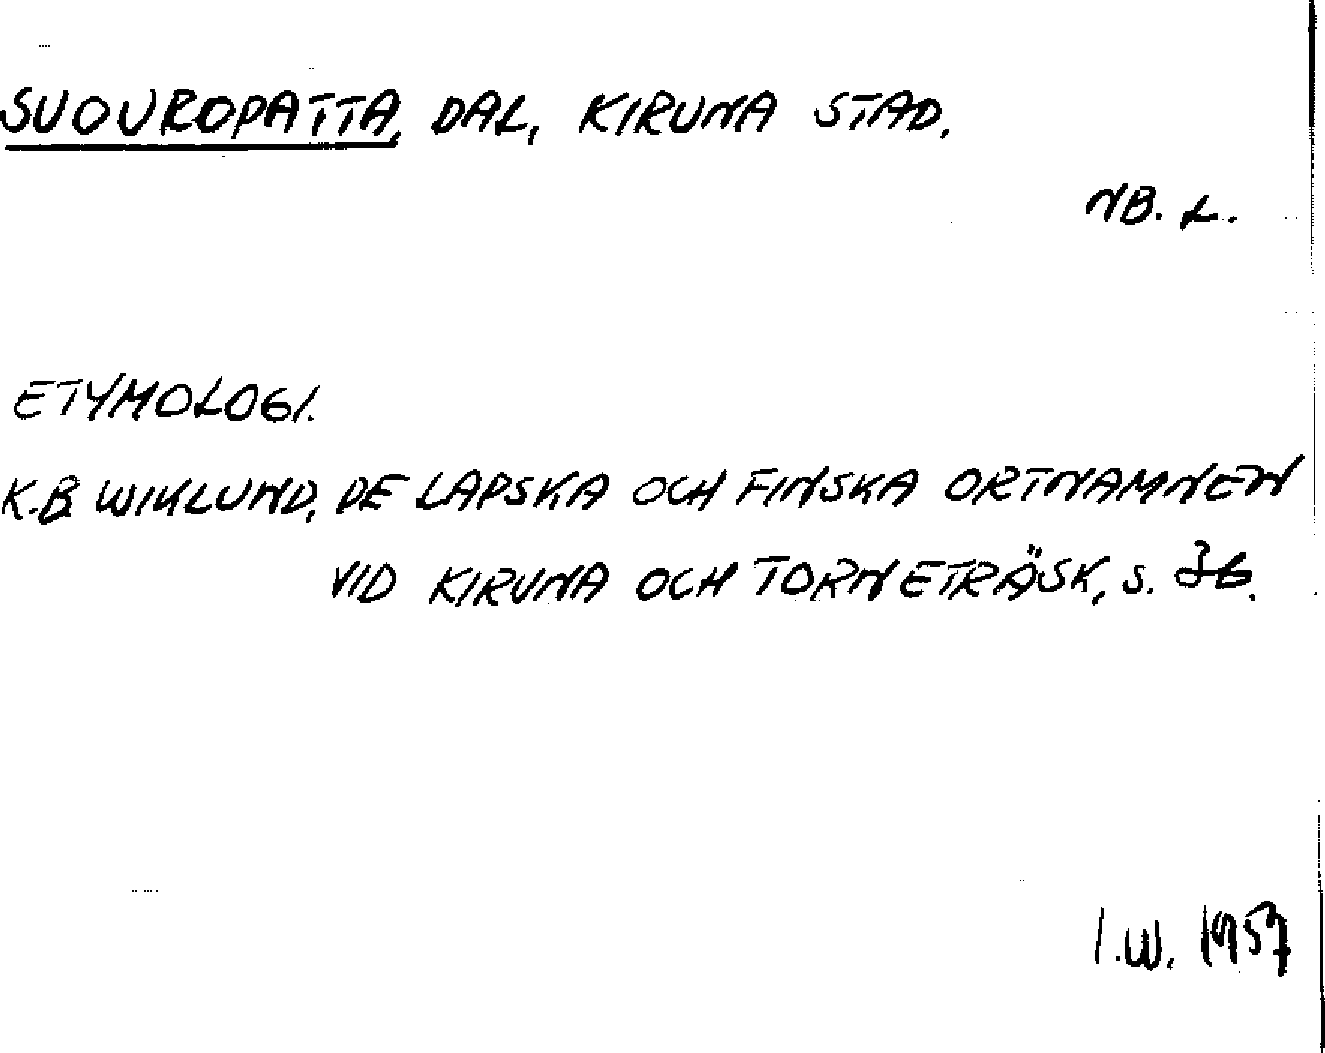 SUOUROPATTA, DAL, KIRUNA STAD.
NB. L.
ETYMOLOGI.
K.B WIKLUND, DE LAPSKA OCH FINSKA ORTNAMNEN
VID KIRUNA OCH TORNETRÄSK, S. 36.
I.W. 1957